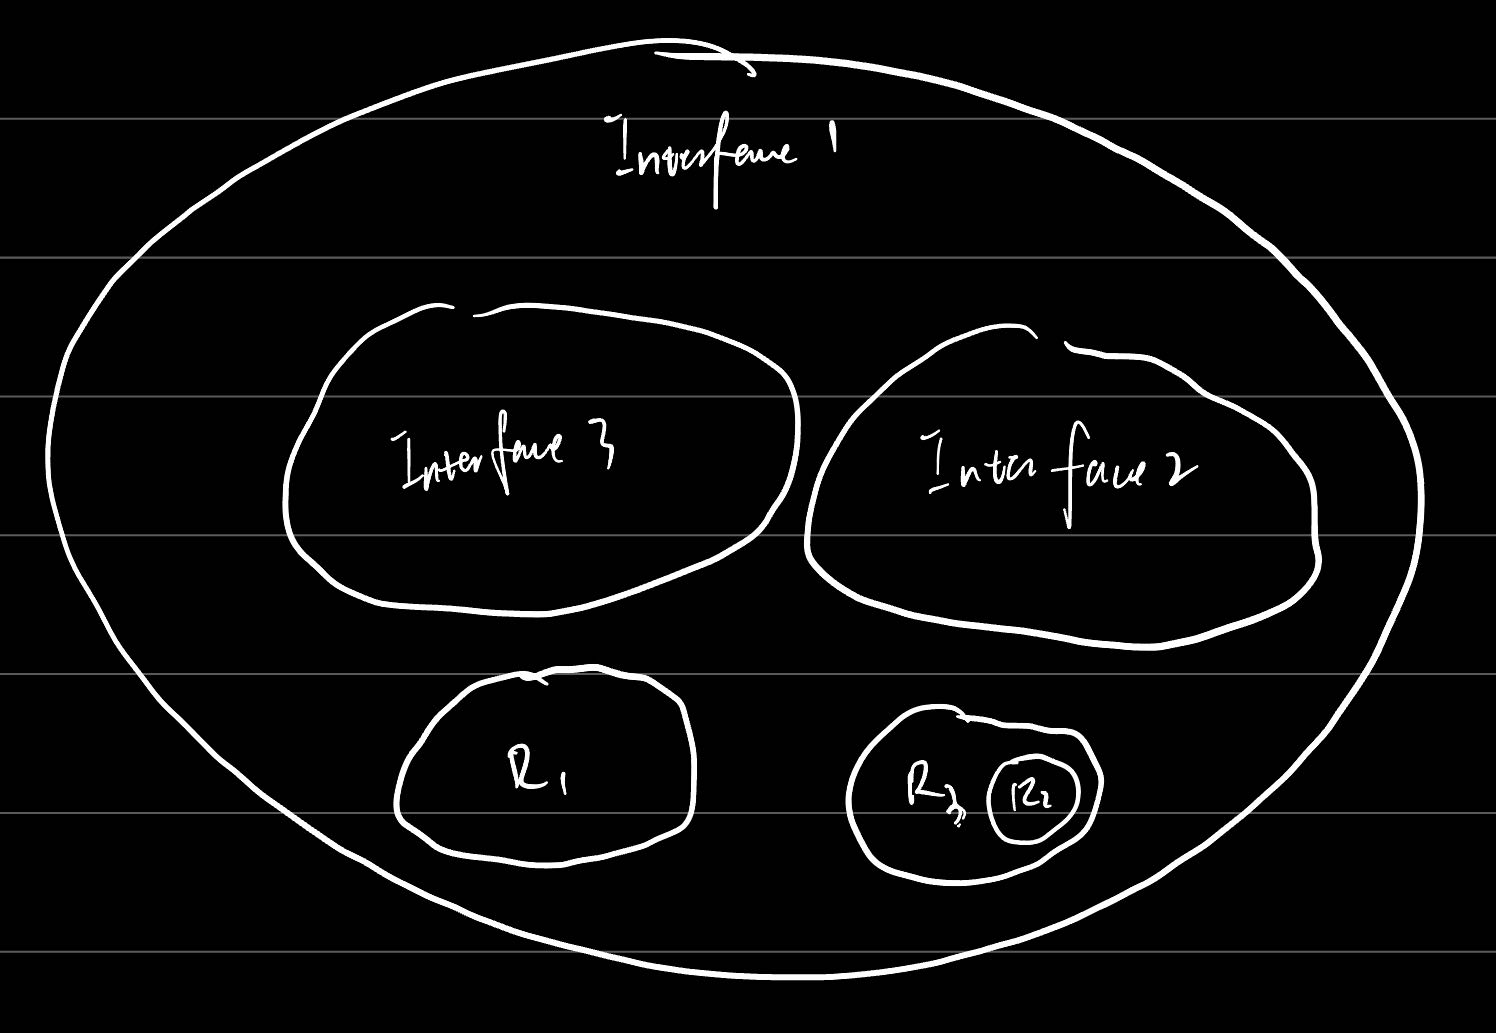 Interface 1
Interface 3
Interface 2
R1
R3
R2